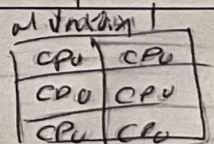 CPU CPU
CPU CPU
CPU CPU